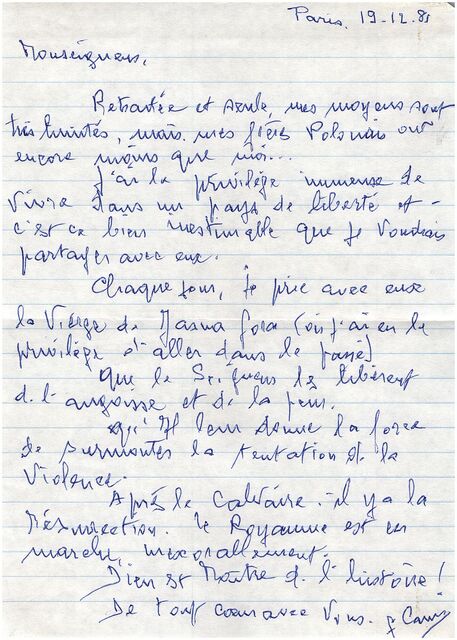 Paris. 19-12.81
Monseigneur,
Retraitée et seule, mes moyens sont
très limités, mais mes frères Polonais ont
encore moins que moi...
J'ai le privilège immense de
vivre dans un pays de liberté et -
c'est ce bien inestimable que je voudrais
partager avec eux.
Chaque jour, je prie avec eux
la Vierge de Jasna Gora (où j'ai eu le
privilège d'aller dans le passé)
que le Seigneur les libèrent
de l'angoisse et de la peur.
qu'Il leur donne la force
de surmonter la tentation de la
violence.
Après le Calvaire - il y a la
Résurrection. Le Royaume est en
marche, inexorablement.
Dieu est Maître de l'histoire!
De tout cœur avec Vous.